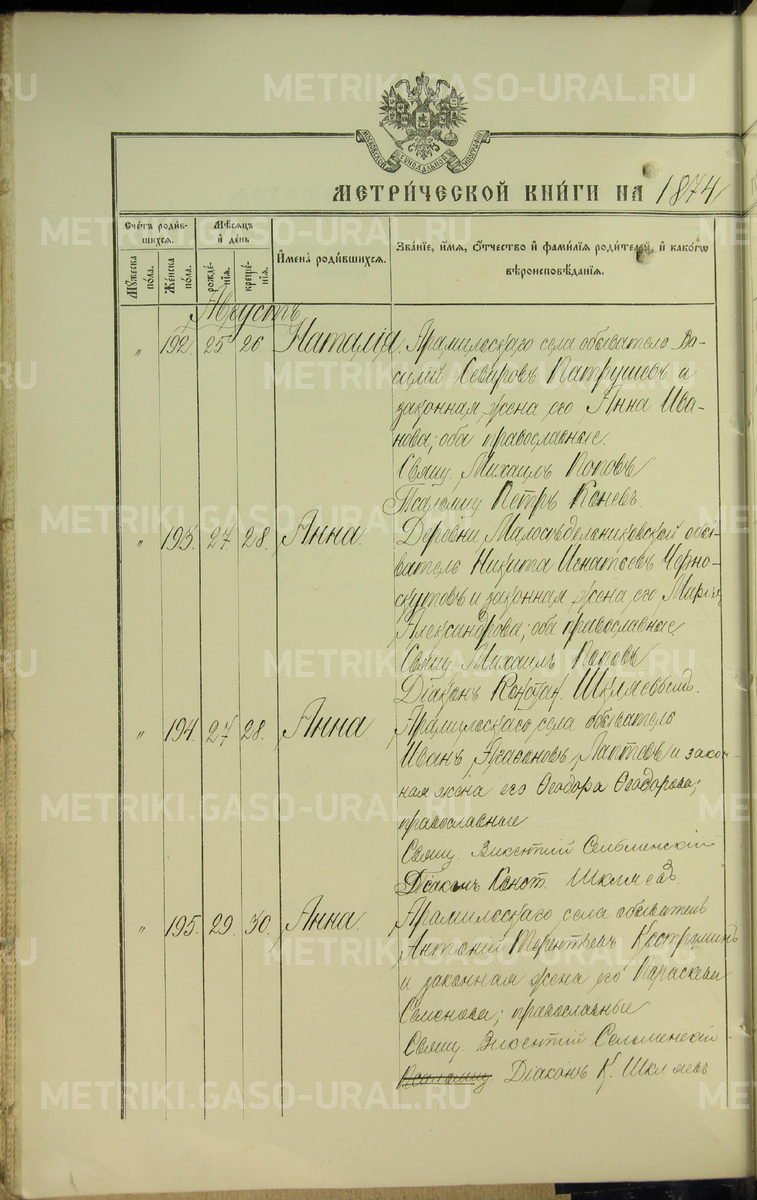 METRIKI.GASO-URAL.RU
МЕТРИ́ЧЕСКОЙ КНИ́ГИ НА 1874
Сче́тъ роди́в-
шихся.
Мѣсяцъ
и҆ де́нь
И҆мена̀ роди́вшихся.
Зва́нїе, и҆́мя, ѻ҆́тчество и҆ фами́лїя роди́телей, и҆ како́гѡ
вѣроисповѣ́данїя.
Мꙋ́жеска
по́ла.
Же́нска
по́ла.
рожде́-
нїя.
креще́-
нїя.
Августъ
" 192 25 26 Наталія. Арамильскаго села обыватель Ва-
силій Севировъ Патрушевъ и
законная жена его Анна Ива-
нова; оба православные.
Свящ. Михаилъ Поповъ
Псаломщ Петръ Коневъ
" 193. 27. 28. Анна. Деревни Малосѣдельниковской обы-
ватель Никита Игнатьевъ Черно-
скутовъ и законная жена его Марія
Александрова; оба православные
Свящ Михаилъ Поповъ
Діаконъ Констан. Шкляевымъ.
" 194. 27 28. Анна Арамильскаго села обыватель
Иванъ Агафоновъ Лаптевъ и закон-
ная жена его Ѳеодора Ѳеодорова;
православные
Свящ. Викентій Сельменскій
Діаконъ Конст. Шкляевъ.
" 195. 29. 30. Анна. Арамильскаго села обыватель
Антоній Терентьевъ Костроминъ
и законная жена его Параскева
Семенова; православные
Свящ. Викентій Сельменскій
Псаломщ Діаконъ К. Шкляевъ